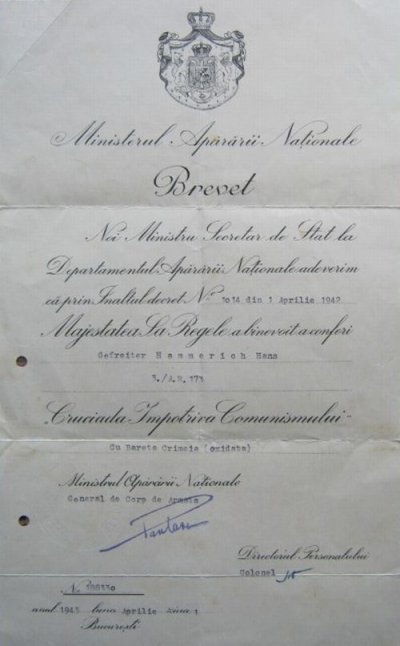 Ministerul Apărării Naționale
Brevet
Noi Ministru Secretar de Stat la
Departamentul Apărării Naționale adeverim
că prin Înaltul decret No 1014 din 1 Aprilie 1942
Majestatea Sa Regele a binevoit a conferi
Gefreiter Hammerich Hans
3./A.R. 173
„Cruciada Împotriva Comunismului"
Cu Bareta Crimeia (oxidata)
Ministrul Apărării Naționale
General de Corp de Armata
Directorul Personalului
Colonel
anul 1943 luna Aprilie ziua 1
București